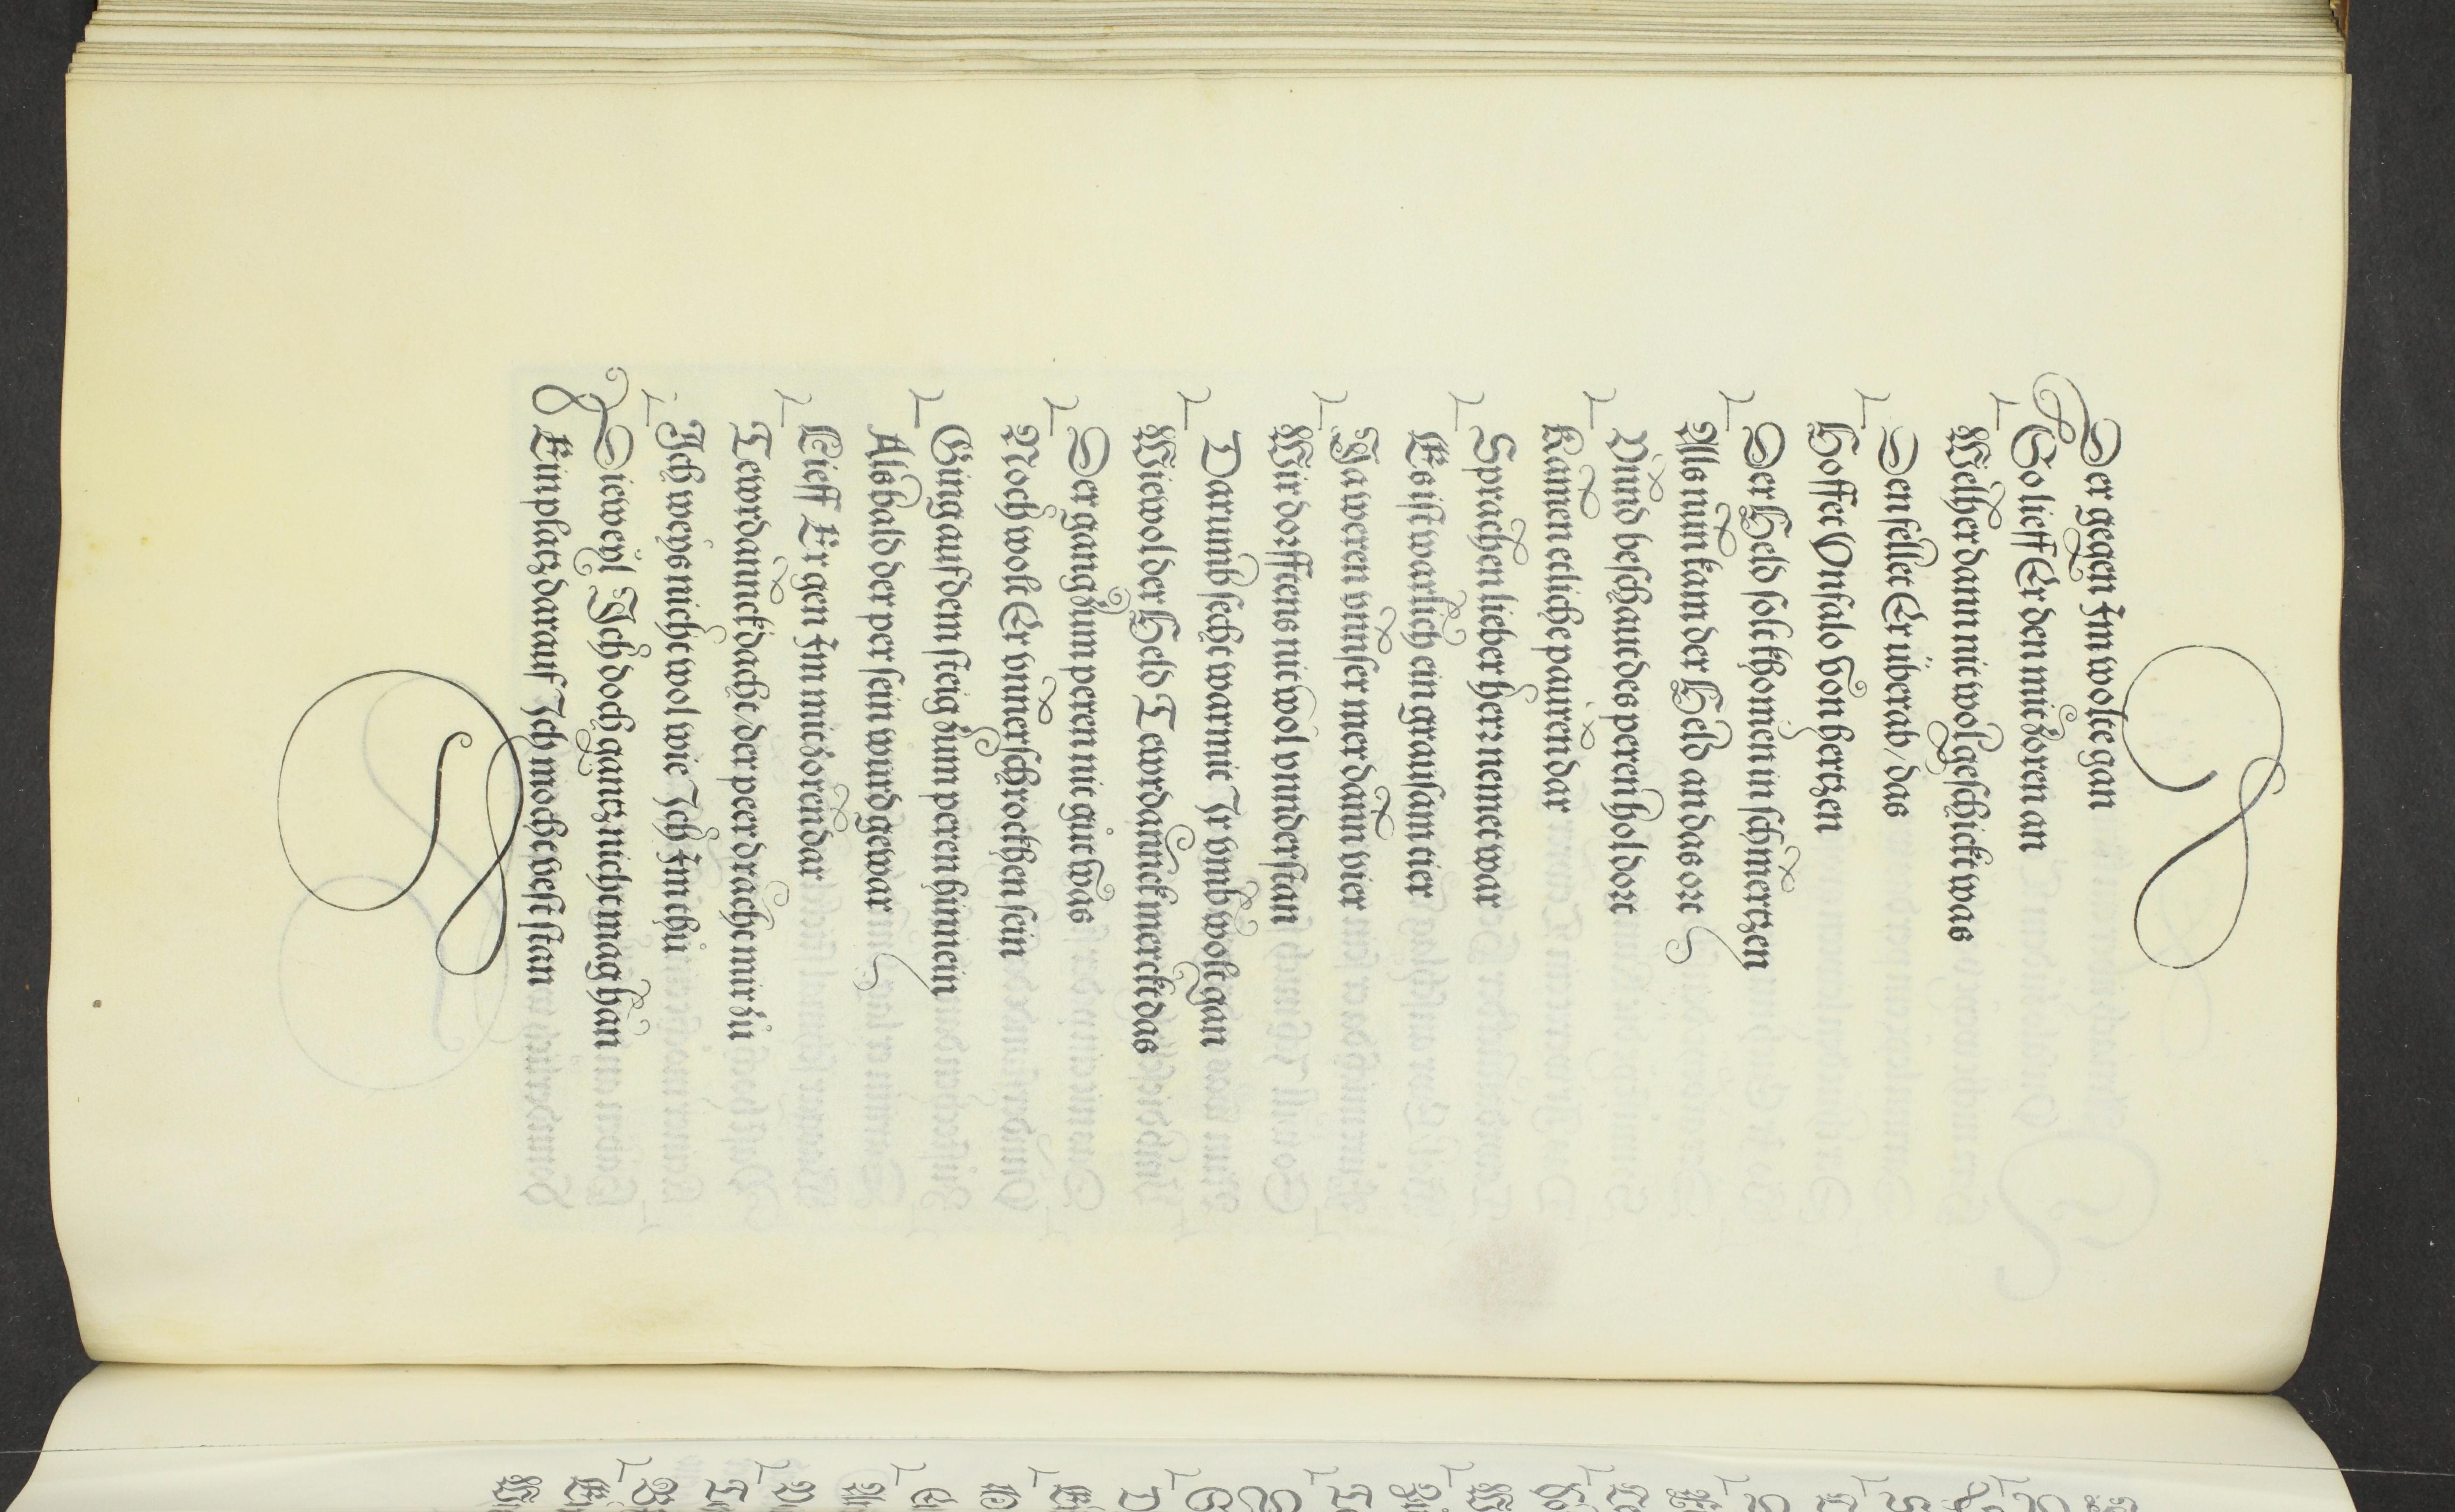 Der gegen Im wolte gan
So lieff Er den mit zoren an
Welher dann nit wol geschickt was
Den fellet Er überab/das
Hoffet Unfalo von hertzen
Der Held solt khomen in schmertzen
Als nun kam der Held an das ort
Unnd beschaut des peren hol dort
Kamen etliche pauren dar
Sprachen lieber herr nemet war
Es ist warlich ein grausam tier
Ja weren unnser mer dann vier
Wir dorfftens nit wol unnderstan
Darumb secht warmit Ir umb wolt gan
Wiewol der Held Tewrdannck merckt das
Der gang zum peren nit gůt was
Noch wolt Er unnerschrockhen sein
Ging auf dem steig zum peren hinnein
Alsbald der per sein wurd gewar
Lieff Er gen Im mit zoren dar
Tewrdannck dacht/der peer dracht mir zů
Ich weys nicht wol wie Ich Im thů
Dieweyl Ich doch gantz nicht mag han
Ein platz darauf Ich mocht vest stan